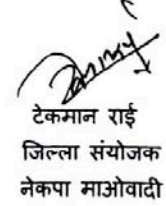 टेकमान राई
जिल्ला संयोजक
नेकपा माओवादी